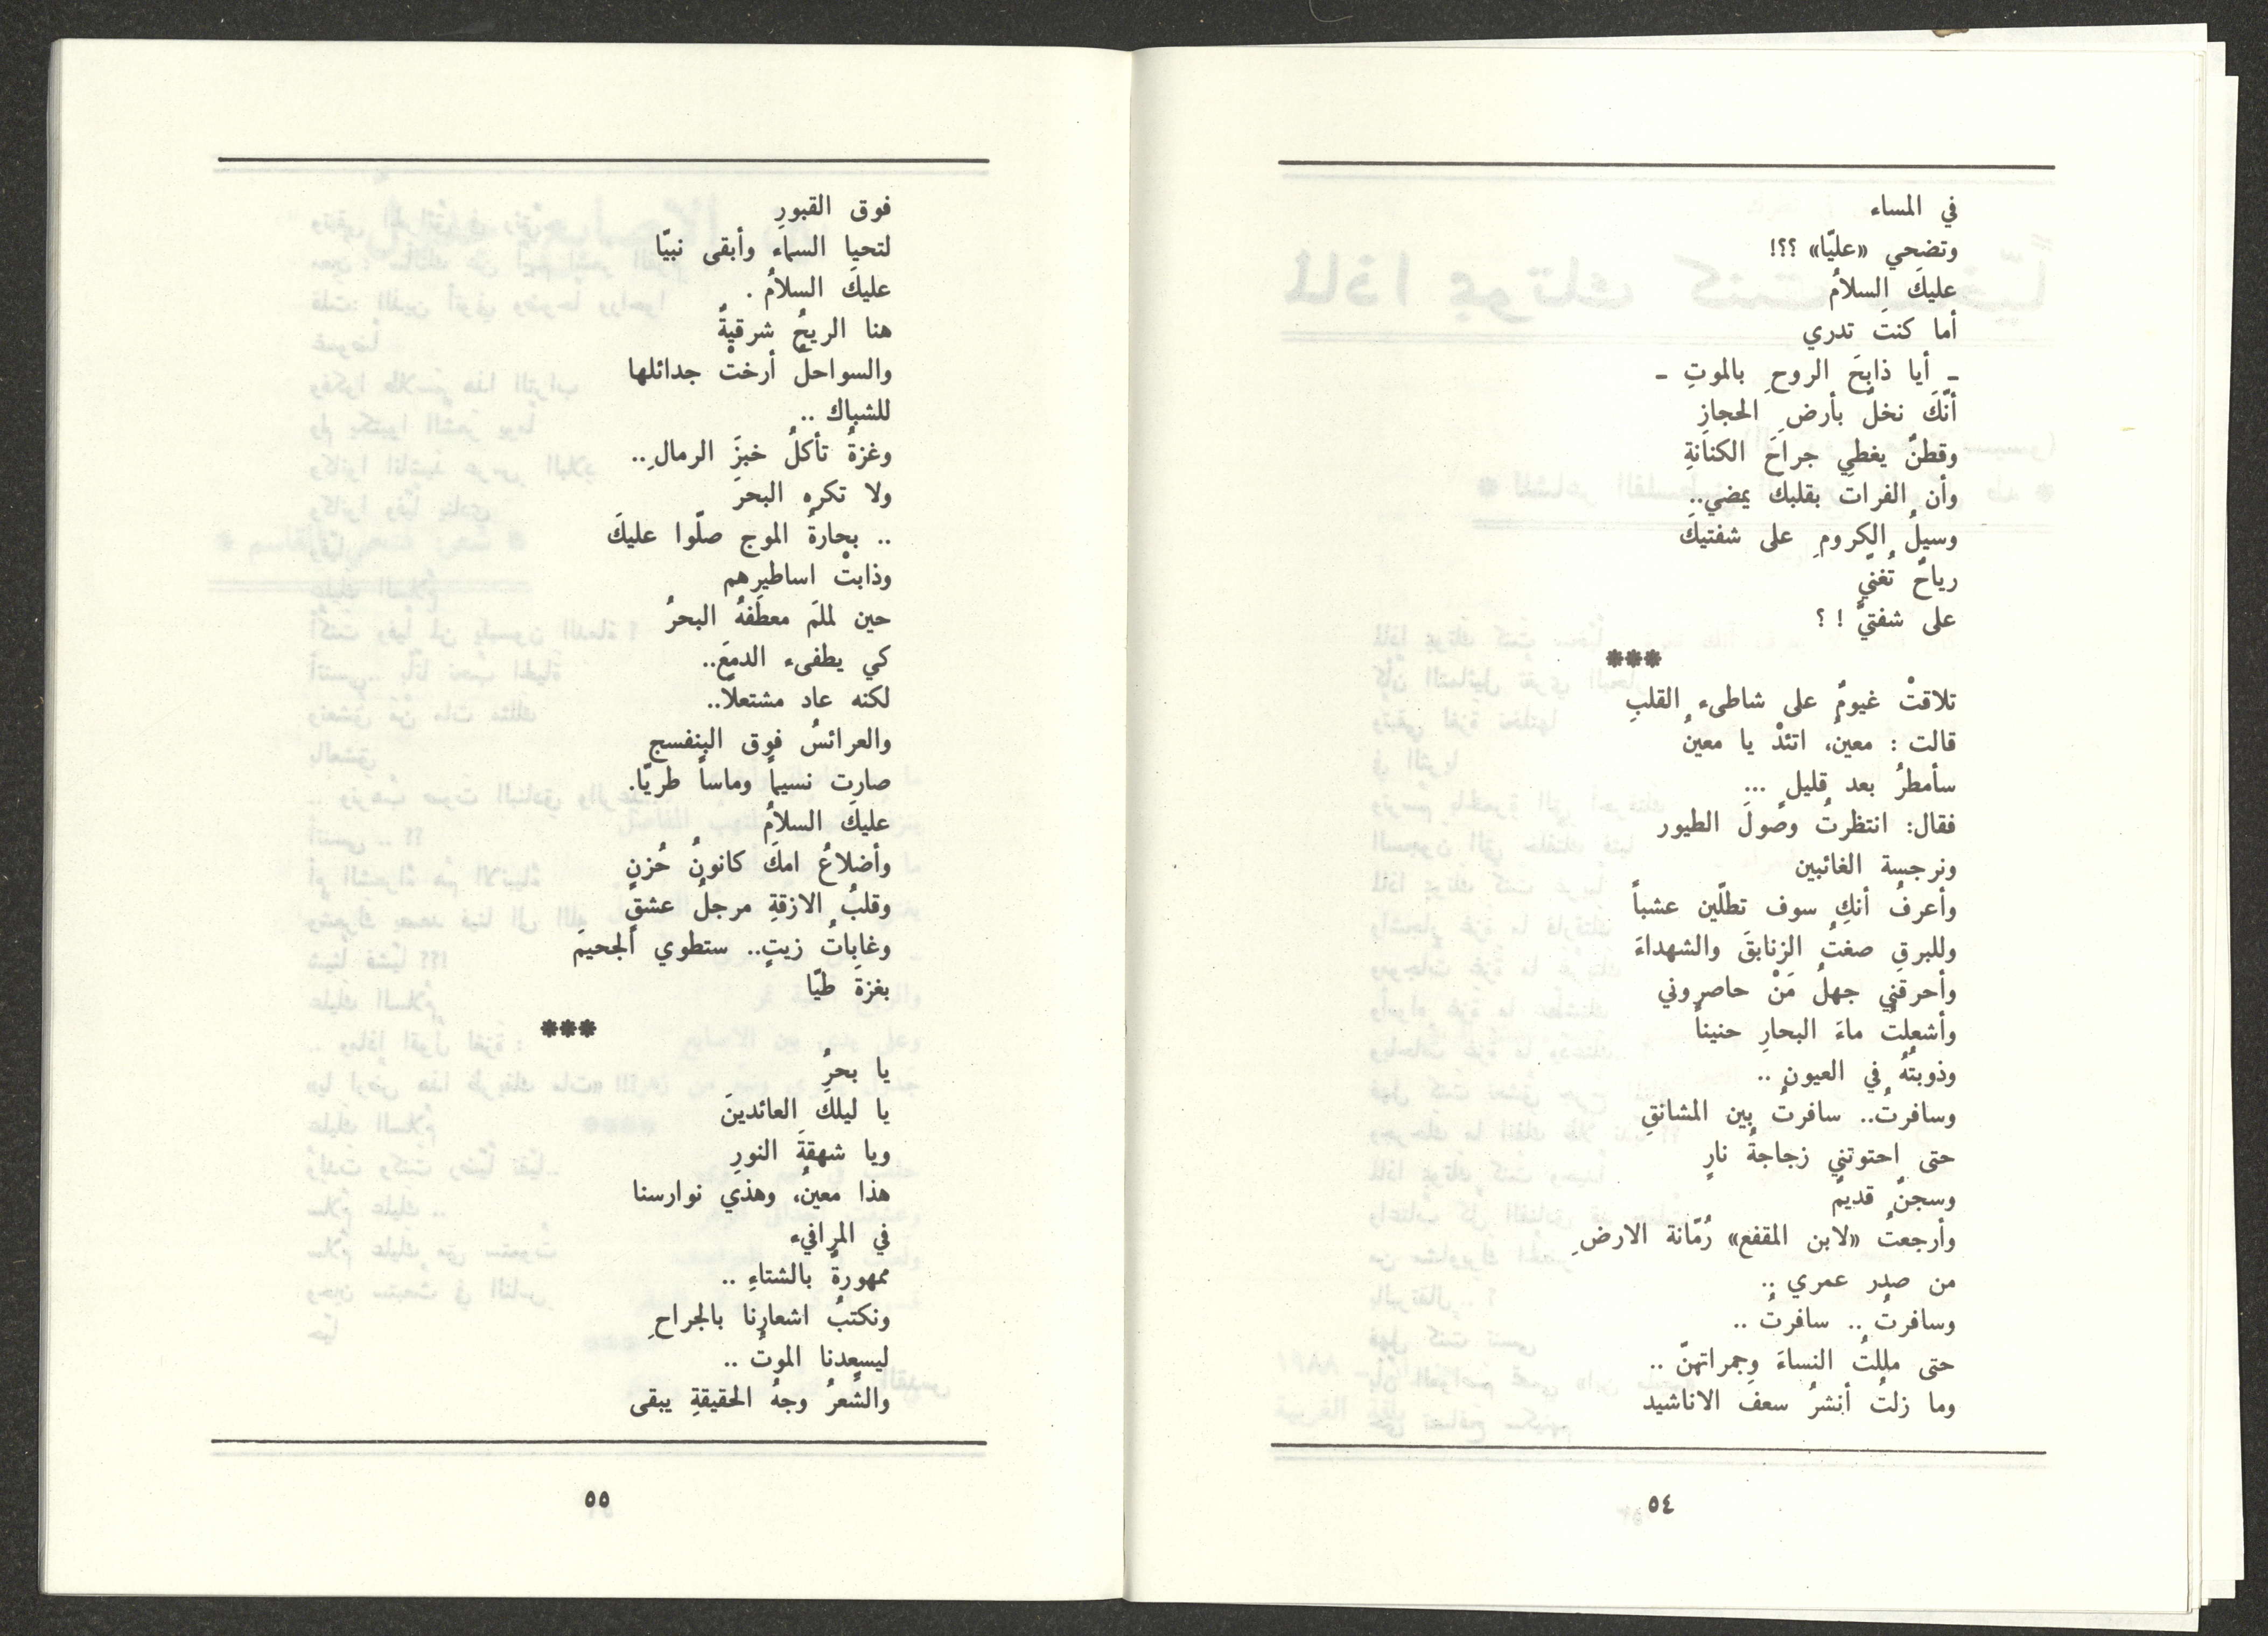 في المساء
وتضحي «عليّا» ؟؟!
عليكَ السلامُ
أما كنتَ تدري
ـ أيا ذابحَ الروحِ بالموتِ ـ
أنّكَ نخلٌ بأرضِ الحجازِ
وقطنٌ يغطي جراحَ الكنانَةِ
وأن الفراتَ بقلبكَ يمضي..
وسيلُ الكرومِ على شفتيكَ
رياحٌ تُغنّي
على شفتيَّ ! ؟
***
تلاقتْ غيومٌ على شاطىء القلبِ
قالت : معينُ، اتئدْ يا معينُ
سأمطرُ بعد قليلٍ ...
فقال: انتظرتُ وصولَ الطيور
ونرجسة الغائبين
وأعرفُ أنكِ سوف تطلّين عشباً
وللبرقِ صغتُ الزنابقَ والشهداءَ
وأحرقَني جهلُ مَنْ حاصروني
وأشعلتُ ماءَ البحارِ حنيناً
وذوبتُهُ في العيونِ ..
وسافرتُ.. سافرتُ بين المشانقِ
حتى احتوتني زجاجةُ نارٍ
وسجنٌ قديمٌ
وأرجعتُ «لابن المقفع» رُمّانة الارضِ
من صدر عمري ..
وسافرتُ .. سافرتُ ..
حتى مللتُ النساءَ وجمراتهنّ ..
وما زلتُ أنشرُ سعفَ الاناشيد
٥٤
فوق القبورِ
لتحيا السماء وأبقى نبيّا
عليكَ السلامُ .
هنا الريحُ شرقيةٌ
والسواحلُ أرختْ جدائلها
للشباك ..
وغزةُ تأكلُ خبزَ الرمالِ..
ولا تكره البحرَ
.. بحارةُ الموج صلّوا عليكَ
وذابتْ اساطيرهم
حين لملمَ معطفهُ البحرُ
كي يطفىء الدمعَ..
لكنه عاد مشتعلاً..
والعرائسُ فوق البنفسج
صارت نسيماً وماساً طريّا.
عليكَ السلامُ
وأضلاعُ امكَ كانونُ حُزنٍ
وقلبُ الازقةِ مرجلُ عشقٍ
وغاباتُ زيتٍ.. ستطوي الجحيمَ
بغزةَ طيّا
***
يا بحرُ
يا ليلكَ العائدينَ
ويا شهقةَ النورِ
هذا معينُ، وهذي نوارسنا
في المرافيء
ممهورةٌ بالشتاءِ ..
ونكتبُ اشعارنا بالجراحِ
ليسعدنا الموتُ ..
والشّعرُ وجهُ الحقيقةِ يبقى
٥٥